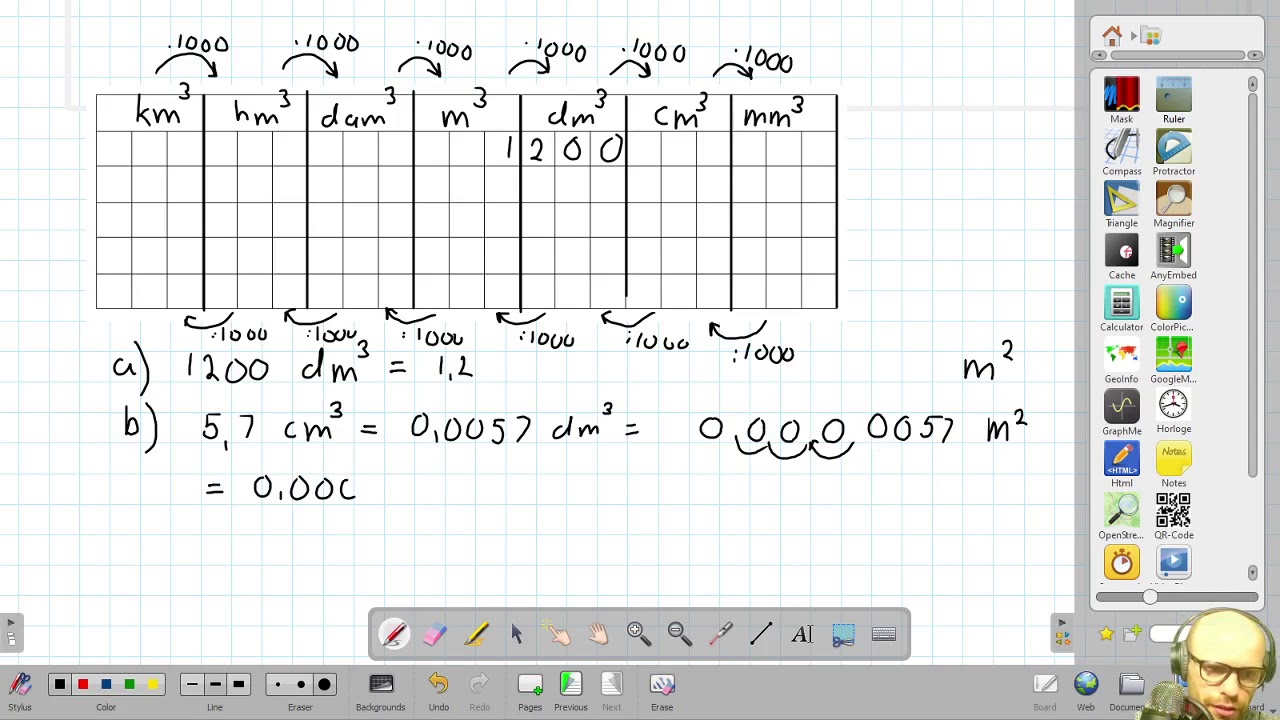 .1000 .1000 .1000 .1000 .1000 .1000
km³ hm³ dam³ m³ dm³ cm³ mm³
1 2 0 0
:1000 :1000 :1000 :1000 :1000 :1000
a) 1200 dm³ = 1,2 m²
b) 5,7 cm³ = 0,0057 dm³ = 0,0000057 m²
= 0,000
Mask Ruler
Compass Protractor
Triangle Magnifier
Cache AnyEmbed
Calculator ColorPic...
GeoInfo GoogleM...
GraphMe Horloge
<HTML> Notes
Html Notes
OpenStre... QR-Code
AI
Stylus Color Line Eraser Backgrounds Undo Redo Pages Previous Next Erase Board Web Documen